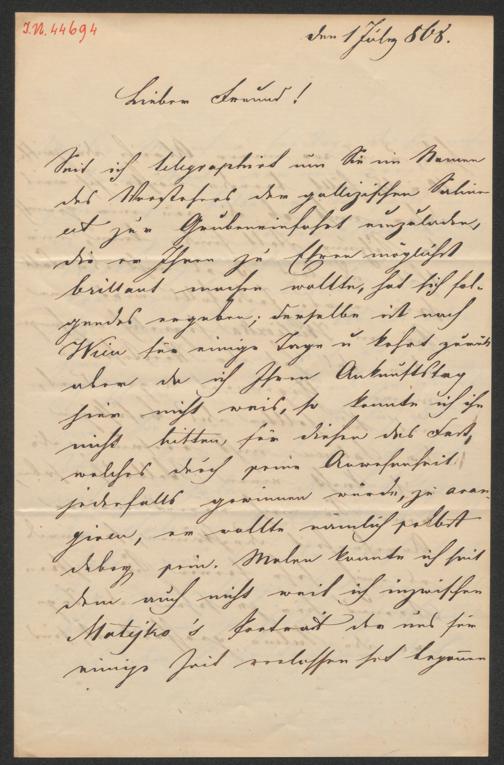 J.N. 44694
den 1 July 868.
Lieber Freund!
Seit ich telegraphirt um Sie im Namen
des Vorstehers der gallizischen Salinen
zur Grubeneinfahrt einzuladen,
die er Ihnen zu Ehren möglichst
brillant machen wollte, hat sich fol-
gendes ergeben: derselbe ist nach
Wien für einige Tage u kehrt zurück
aber da ich Ihren Ankunftstag
hier nicht weis, so konnte ich ihn
nicht bitten, für diesen das Fest,
welches durch seine Anwesenheit
jedenfalls gewinnen würde, zu aran
giren, er wollte nämlich selbst
dabey sein. Malen konnte ich seit
dem auch nicht weil ich inzwischen
Matejko's Portrait der uns für
einige Zeit verlassen hat begonnen